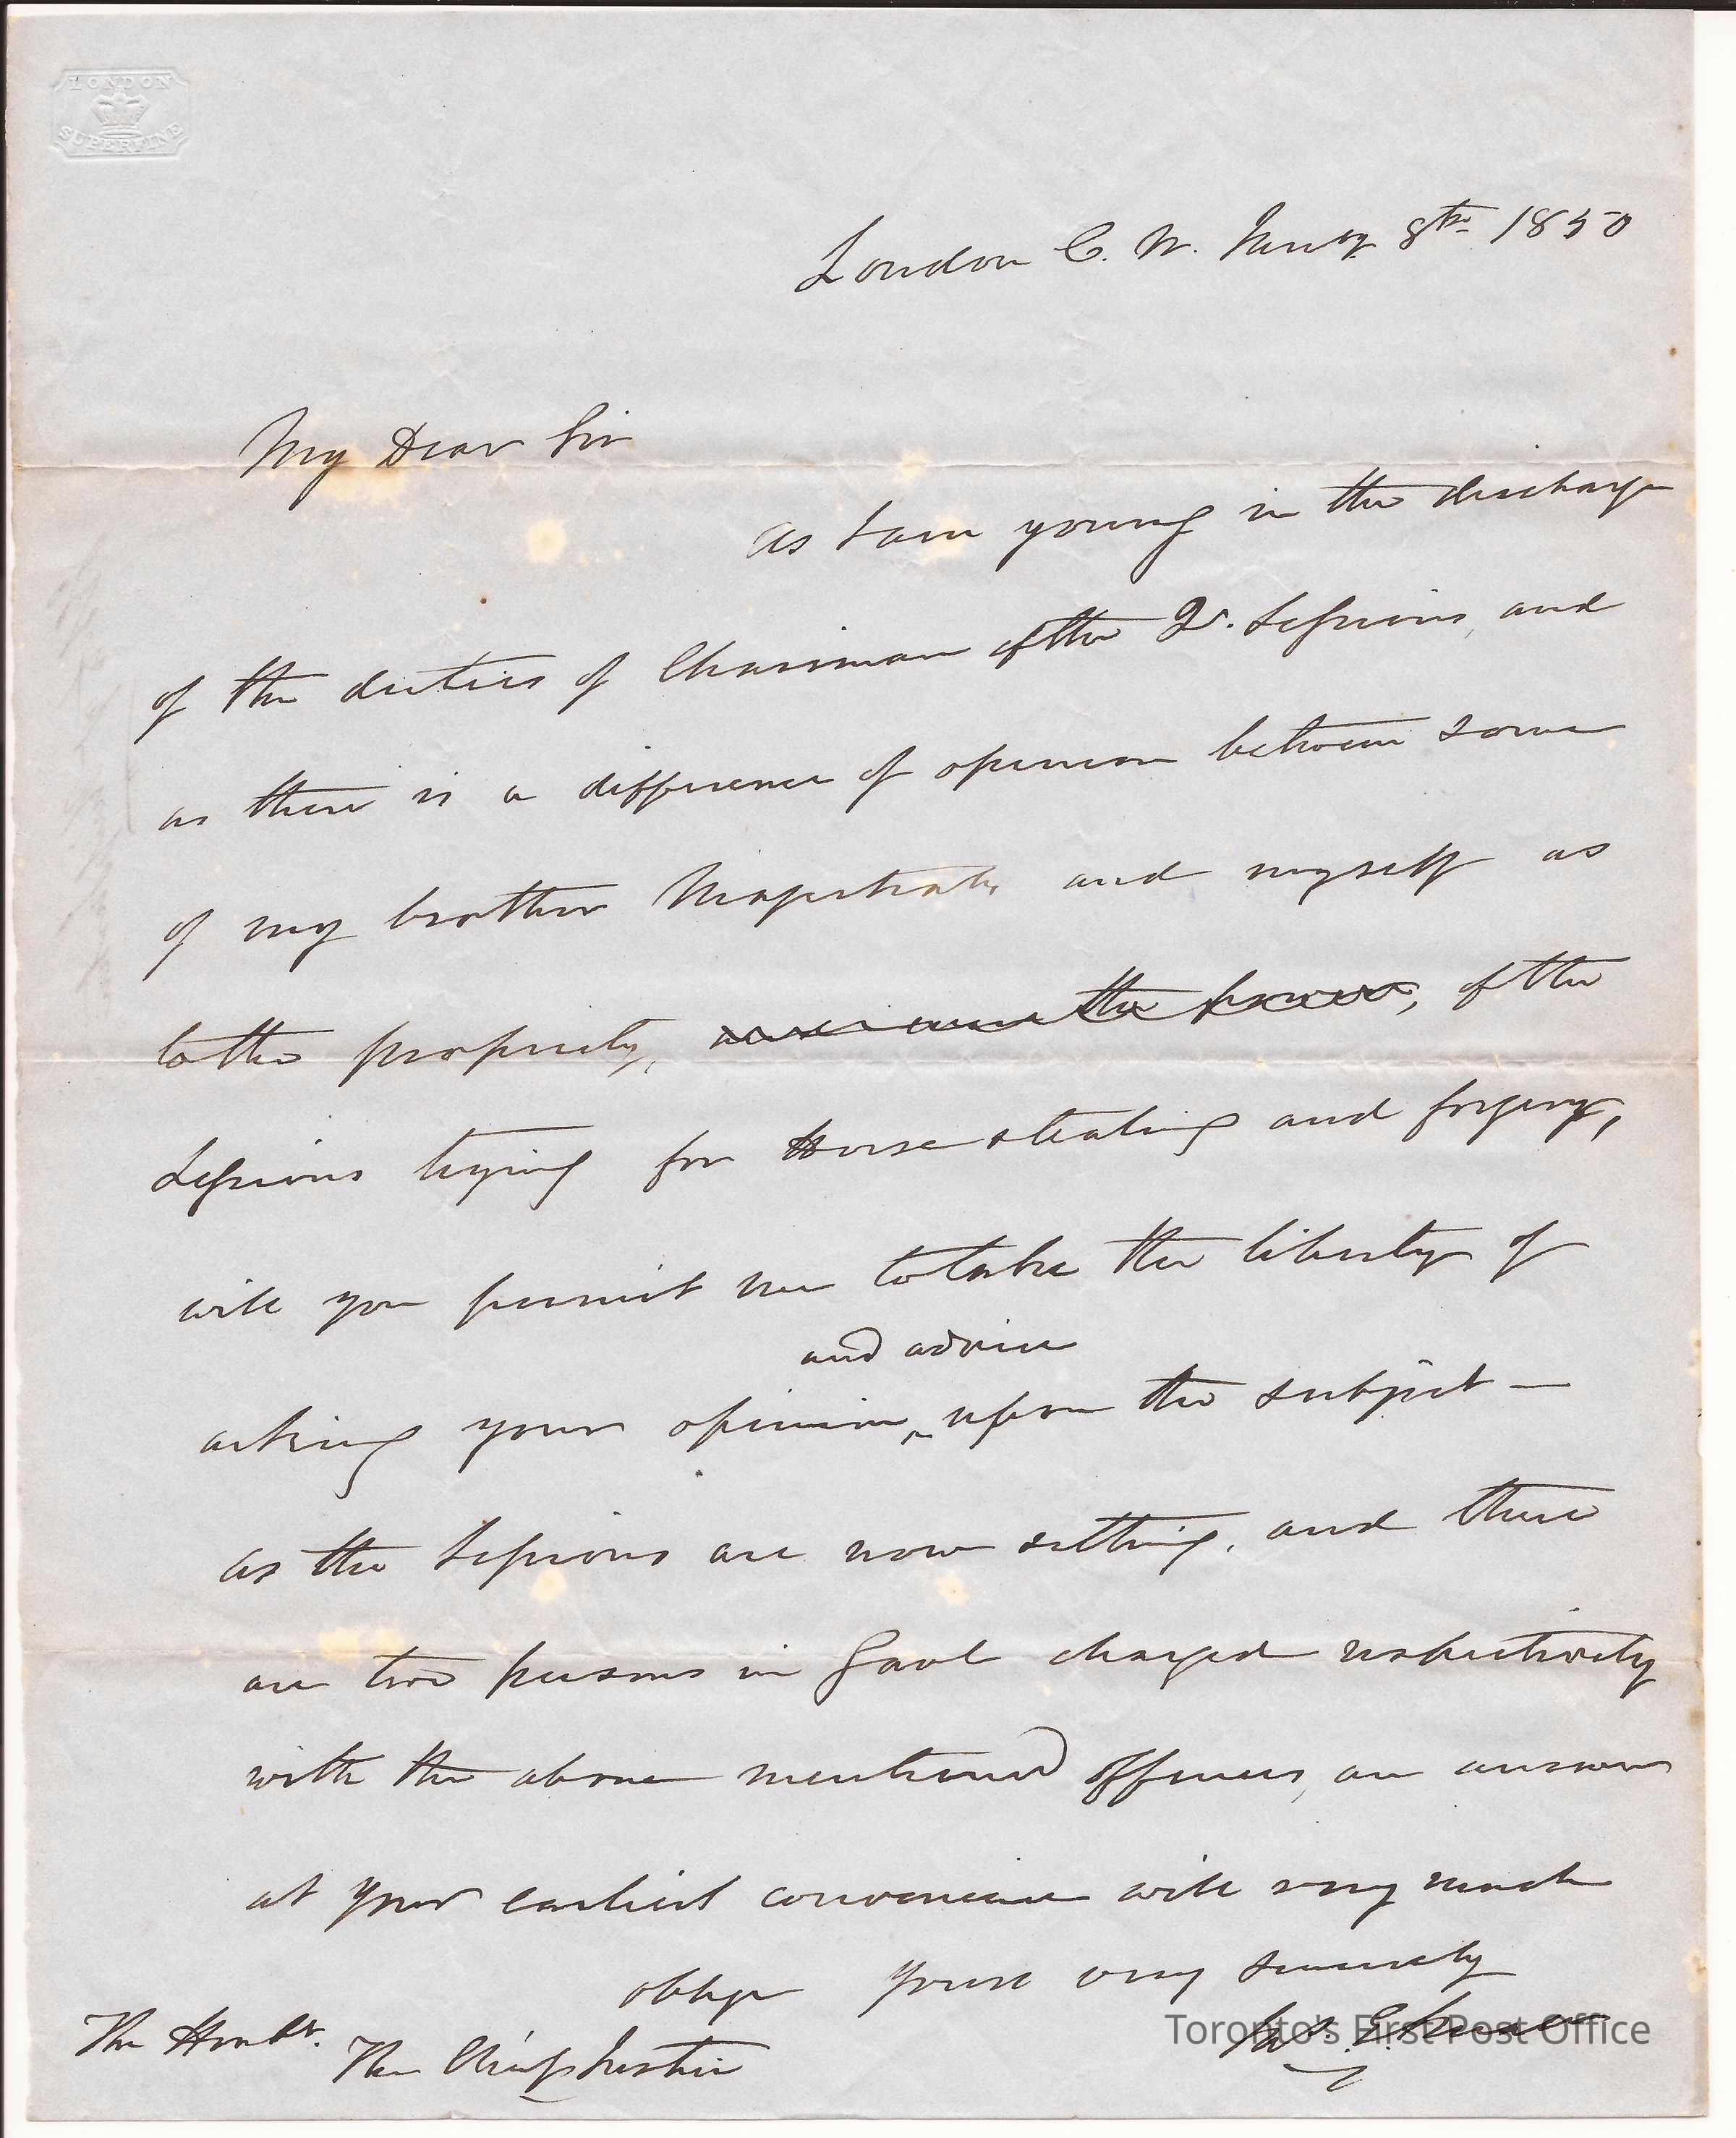 LONDON
SUPERFINE
London C. W. Jany 8th 1850
My Dear Sir
as I am young in the discharge
of the duties of Chairman of the Qr. Sessions, and
as there is a difference of opinion between some
of my brother Magistrates and myself as
to the propriety, the power, of the
Sessions trying for Horse stealing and forgery,
will you permit me to take the liberty of
and advice
asking your opinion, upon the subject —
as the Sessions are now sitting, and there
are two persons in Gaol charged respectively
with the above mentioned offences, an answer
at your earliest convenience will very much
oblige yours very sincerely
The Honble.
The Chief Justice
Toronto's First Post Office